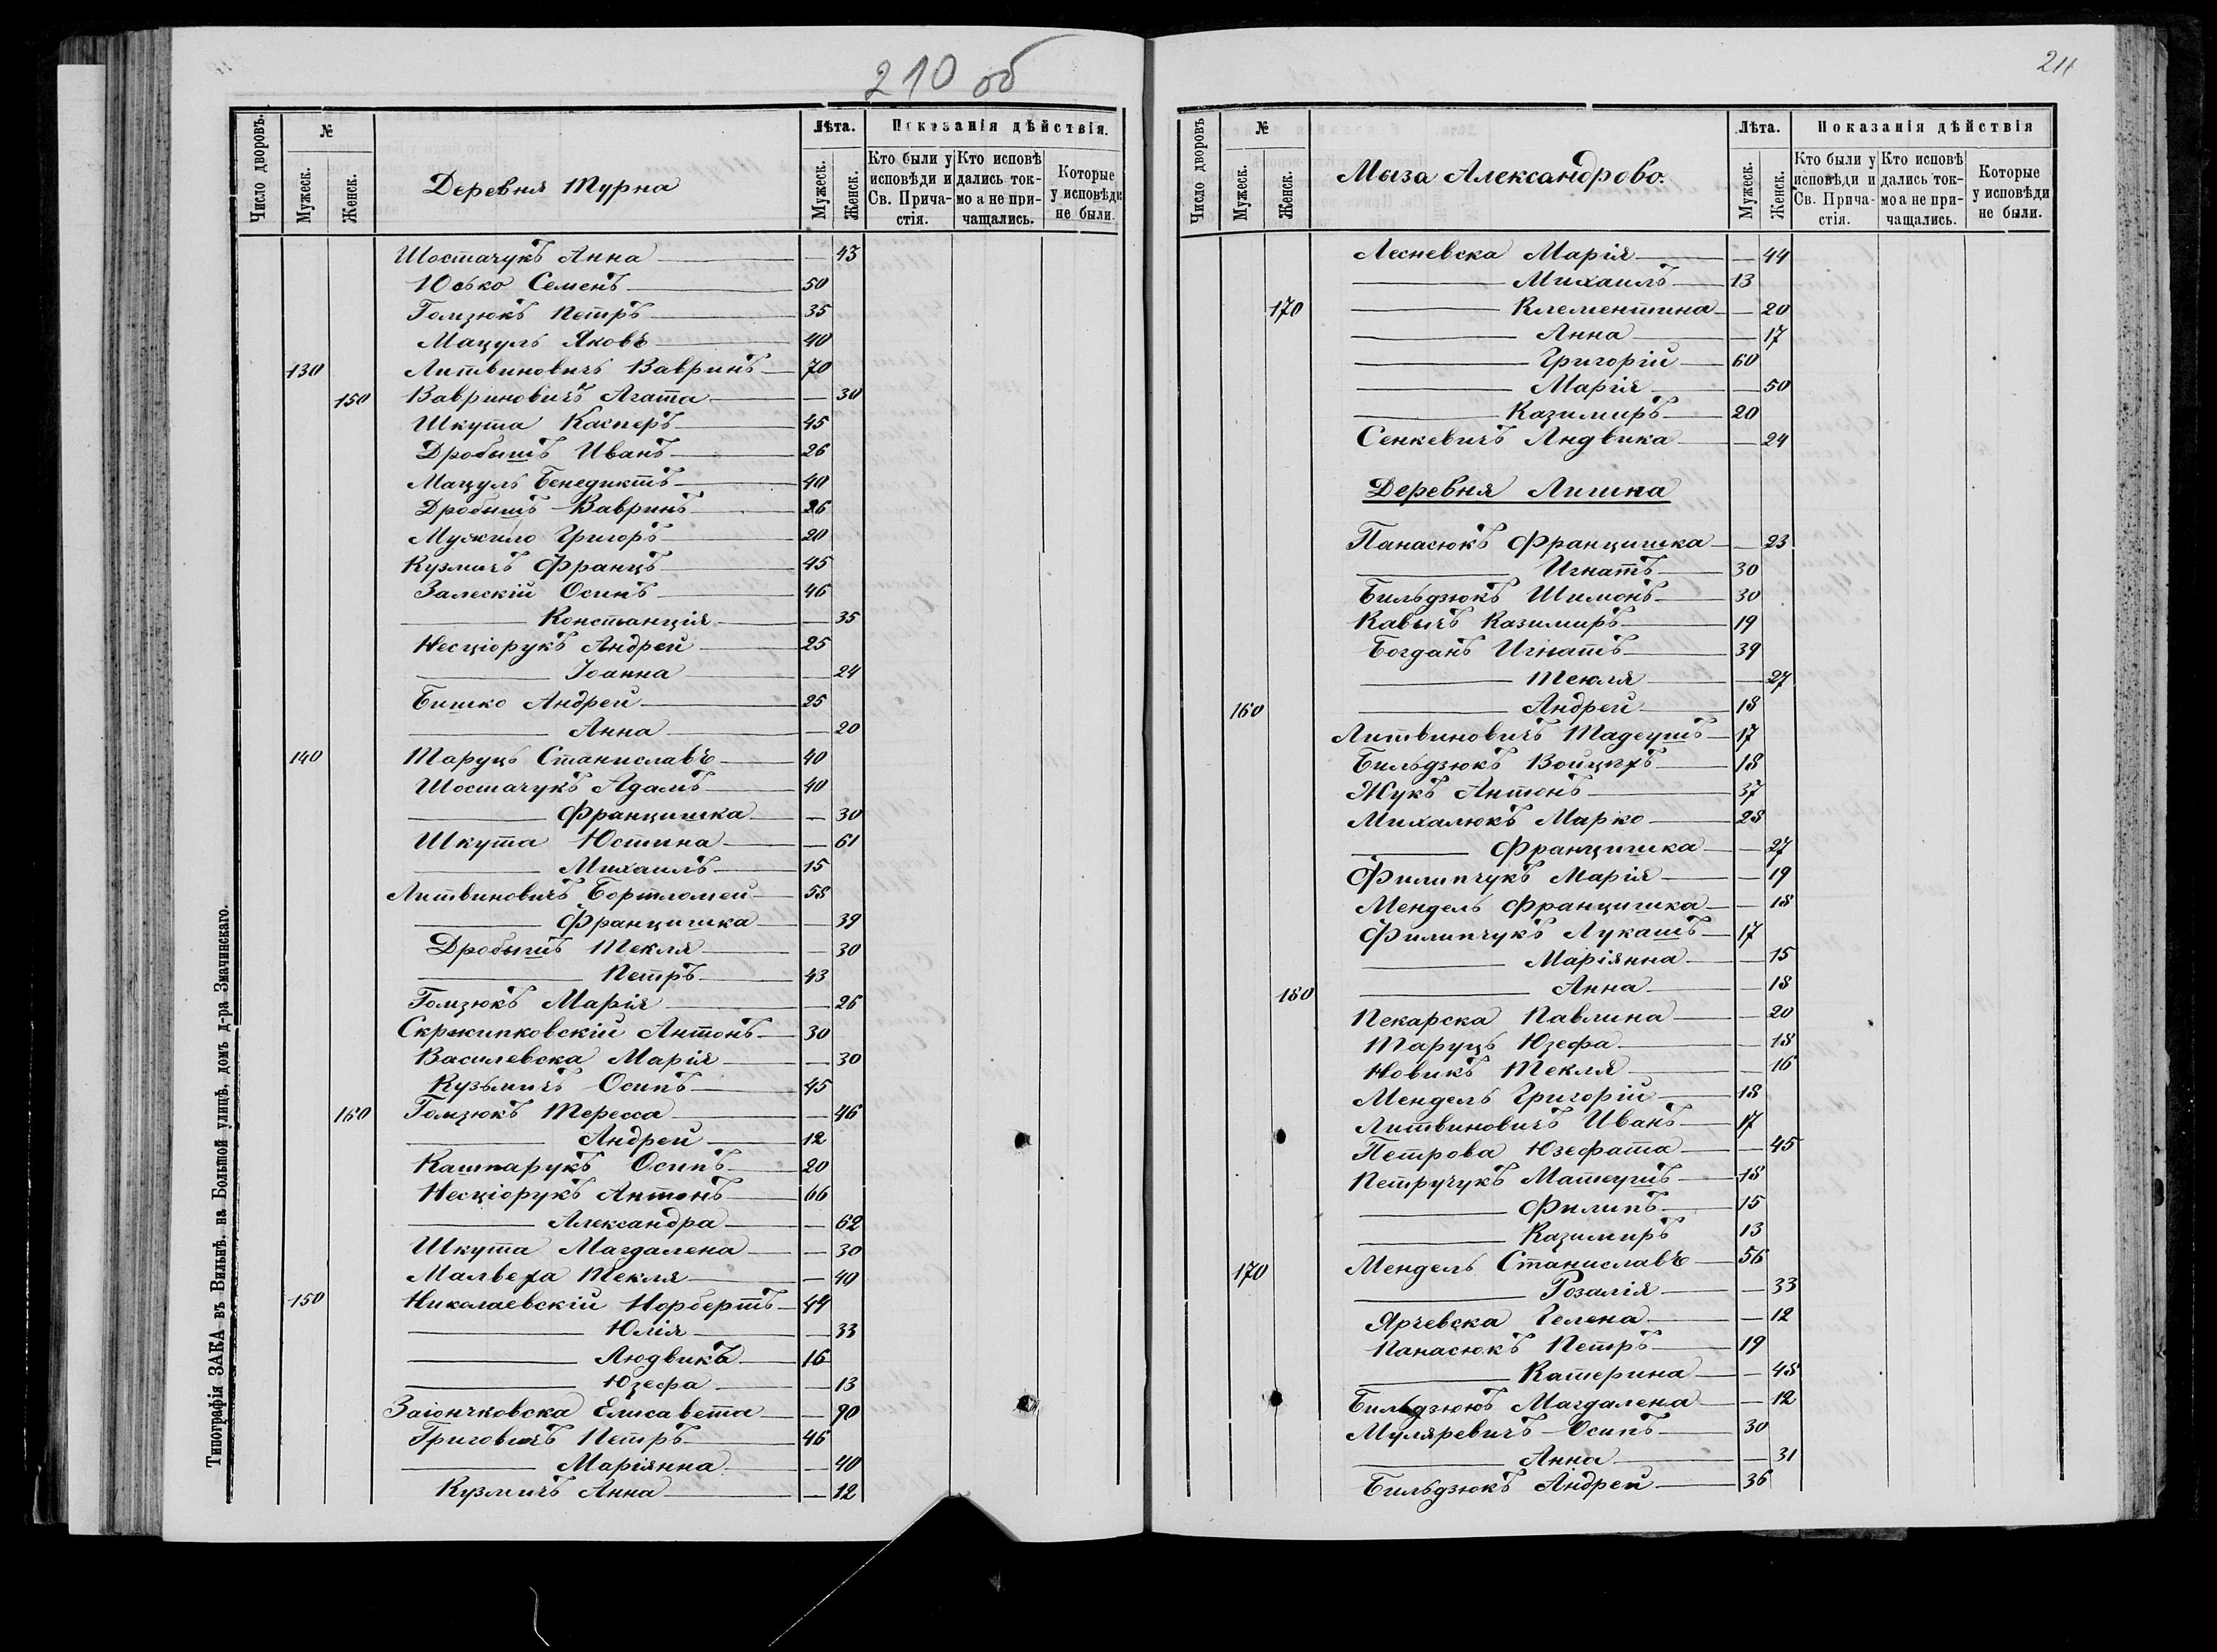 210 об
Число дворовъ.
№
Мужеск.
Женск.
Деревня Турна
Лѣта.
Мужеск.
Женск.
Показанія дѣйствія.
Кто были у исповѣди и Св. Причастія.
Кто исповѣдались токмо а не причащались.
Которые у исповѣди не были.
Шостачукъ Анна — 43
Юсько Семенъ 50
Гомзюкъ Петръ 35
Мацуль Яковъ 40
130 Литвиновичъ Вавринъ 70
150 Вавриновичъ Агата — 30
Шкута Касперъ 45
Дробышъ Иванъ 26
Мацуль Бенедиктъ 40
Дробышъ Вавринъ 26
Мужило Григоръ 20
Кузмичъ Францъ 45
Залескій Осипъ 46
— Констанція — 35
Несціорукъ Андрей 25
— Іоанна — 24
Бишко Андрей 25
— Анна — 20
140 Таруць Станиславъ 40
Шостачукъ Адамъ 40
— Францишка — 30
Шкута Юстина — 61
— Михаилъ 15
Литвиновичъ Бортломей 58
— Францишка — 39
Дробышъ Текля — 30
— Петръ 43
Гомзюкъ Марія — 26
Скржипковскій Антонъ 30
Василевска Марія — 30
Кузьмичъ Осипъ 45
160 Гомзюкъ Тересса — 46
— Андрей 12
Кашпарукъ Осипъ 20
Несціорукъ Антонъ 66
— Александра — 62
Шкута Магдалена — 30
Малвеха Текля — 40
150 Николаевскій Норбертъ 44
— Юлія — 33
— Людвикъ 16
— Юзефа — 13
Заіончковска Елисавета — 90
Григовичъ Петръ 46
— Маріянна — 40
Кузмичъ Анна — 12
Типографія ЗАКА въ Вильнѣ, на Большой улицѣ, домъ д-ра Змачинскаго.
211
Число дворовъ
№
Мужеск.
Женск.
Мыза Александрово.
Лѣта.
Мужеск.
Женск.
Показанія дѣйствія
Кто были у исповѣди и Св. Причастія.
Кто исповѣдались токмо а не причащались.
Которые у исповѣди не были.
Лесневска Марія — 44
— Михаилъ 13
170 — Клементина — 20
— Анна — 17
— Григорій 60
— Марія — 50
— Казимиръ 20
Сенкевичъ Людвика — 24
Деревня Лишна
Панасюкъ Францишка — 23
— Игнатъ 30
Бильдзюкъ Шимонъ 30
Кавычъ Казимиръ 19
Богданъ Игнатъ 39
— Текля — 27
160 — Андрей 18
Литвиновичъ Тадеушъ 17
Бильдзюкъ Войцехъ 18
Жукъ Антонъ 37
Михалюкъ Марко 28
— Францишка — 27
Филипчукъ Марія — 19
Мендель Францишка — 18
Филипчукъ Лукашъ 17
— Маріянна — 15
180 — Анна — 18
Пекарска Павлина — 20
Таруць Юзефа — 18
Новикъ Текля — 16
Мендель Григорій 18
Литвиновичъ Иванъ 17
Петрова Юзефата — 45
Петручукъ Матеушъ 18
— Филипъ 15
— Казимиръ 13
170 Мендель Станиславъ 56
— Розалія — 33
Ярчевска Гелена — 12
Панасюкъ Петръ 19
— Катерина — 48
Бильдзююъ Магдалена — 12
Муляревичъ Осипъ 30
— Анна — 31
Бильдзюкъ Андрей 36